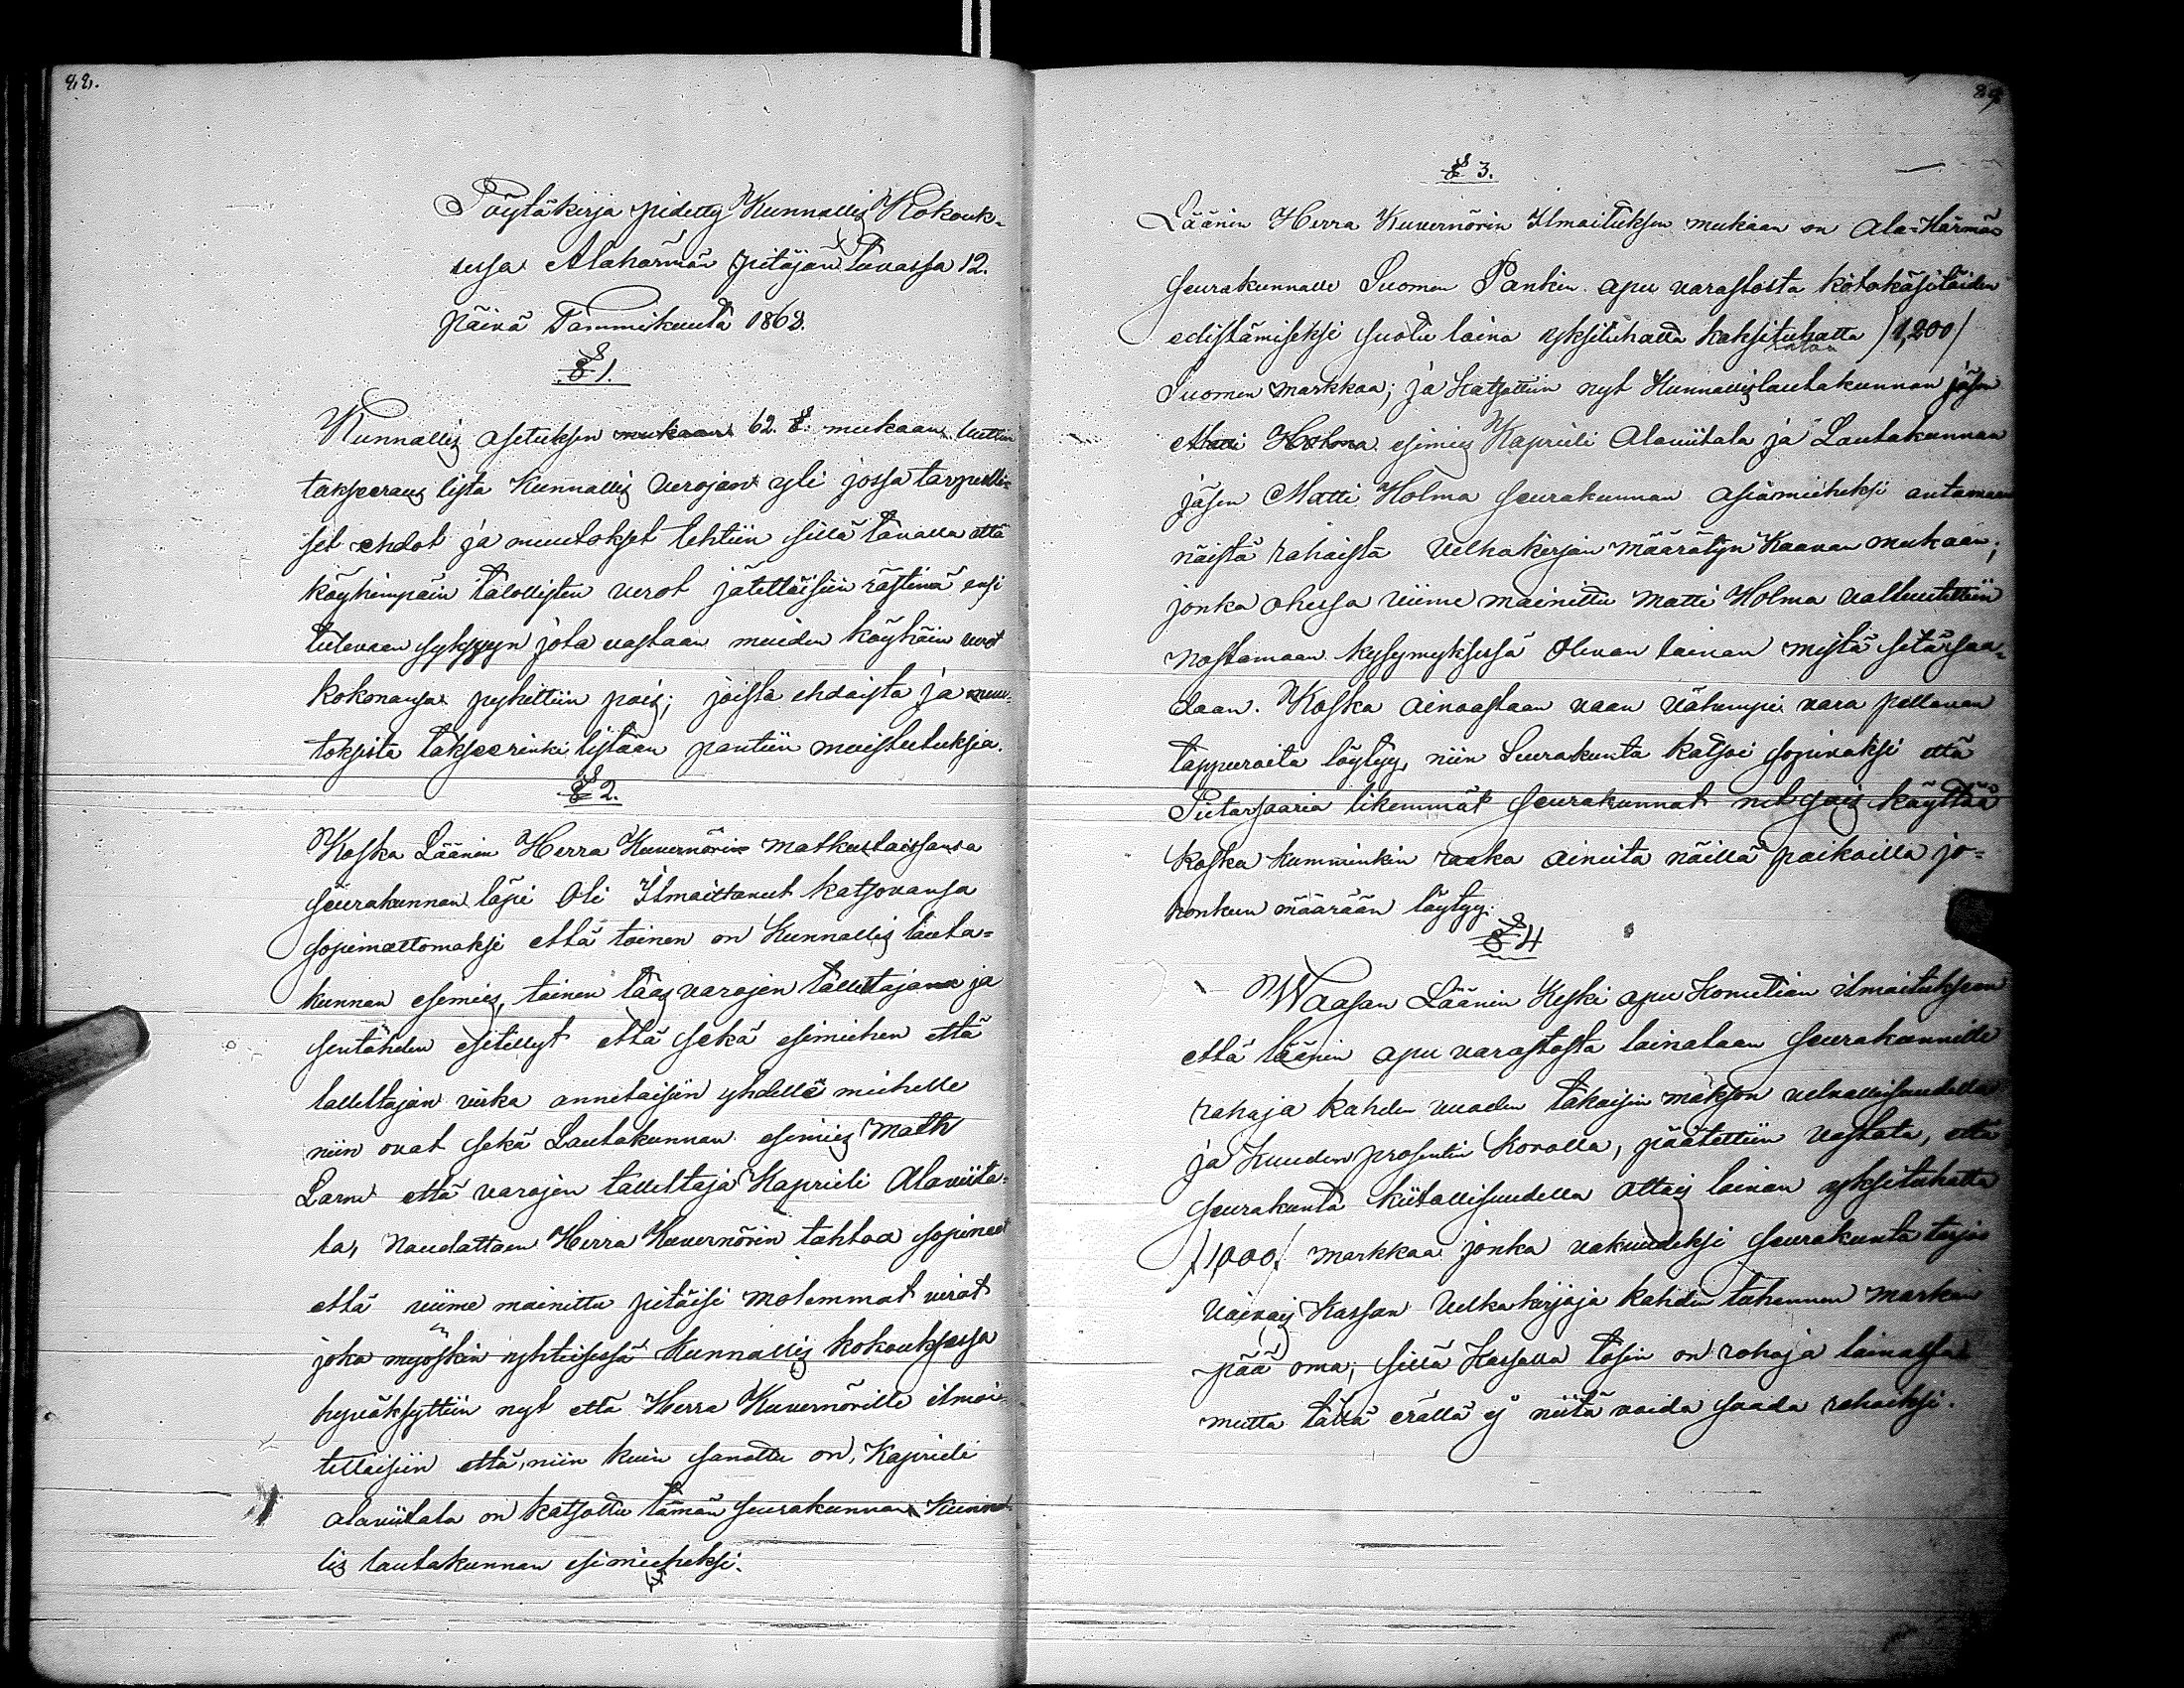 88.
Pöytäkirja pidetty Kunnallis Kokouk-
sessa Alahärmän pitäjän tuvassa 12.
päivä Tammikuuta 1868.
§ 1.
Kunnallis asetuksen mukaan 62. §. mukaan luettiin
takseeraus lista Kunnallis verojen yli jossa tarpeelli-
set ehdot ja muutokset tehtiin sillä tavalla että
köyhimpäin talollisten verot jätettäisiin rästinä ensi
tulevaan syksyyn jota vastaan muiden köyhäin verot
kokonansa pyhittiin pois; joista ehdoista ja muu-
toksista takseerinki listaan pantiin muistutuksia.
§ 2.
Koska Läänin Herra Kuvernörin matkustaissansa
seurakunnan läpi oli Ilmaittanut katsovansa
sopimattomaksi että toinen on Kunnallis lauta-
kunnan esimies, toinen taas varojen tallettajana ja
sentähden esitellyt että sekä esimiehen että
tallettajan virka annetaisiin yhdelle miehelle
niin ovat sekä Lautakunnan esimies Matts
Larm että varojen tallettaja Kaprieli Alaviita-
la, Noudattaen Herra Kuvernörin tahtoa sopineet
että viime mainittu pitäisi molemmat virat
joka myöskin yhteisessä Kunnallis kokouksessa
hyväksyttiin nyt että Herra Kuvernörille ilmoi-
tettaisiin että, niin kuin sanottu on, Kaprieli
Alaviitala on katsottu tämän seurakunnan Kunnal-
lis lautakunnan esimieheksi.
89
§ 3.
Läänin Herra Kuvernörin Ilmaituksen mukaan on Ala-Härmän
seurakunnalle Suomen Pankin apu varastosta kotokäsitöiden
edistämiseksi suotu laina yksituhatta kaksituhatta /1,200/
sataa
Suomen markkaa; ja katsottiin nyt Kunnallislautakunnan jäsen
Matti Holma esimies Kaprieli Alaviitala ja Lautakunnan
jäsen Matti Holma seurakunnan asiamieheksi antamaan
näistä rahoista Velkakirjan määrätyn Kaavan mukaan;
jonka ohessa viime mainittu Matti Holma valtuutettiin
nostamaan kysymyksessä Olevan lainan mistä sitä saa-
daan. Koska ainoastaan vaan vähempi vara pellavan
tappuroita löytyy, niin Seurakunta katsoi sopivaksi että
Pietarsaaria likemmät seurakunnat net sais käyttää
koska kumminkin raaka aineita näillä paikoilla jo-
honkuun määrään löytyy.
§ 4
Waasan Läänin Keski apu Komitian ilmaituksen
että läänin apu varastosta lainataan seurakunnille
rahaja kahden vuoden takaisin makson velvallisuudella
ja Kuuden prosentin Korolla, päätettiin vastata, että
seurakunta kiitollisuudella ottais lainan yksituhatta
/1,000/ markkaa jonka vakuudeksi seurakunta tarjoo
Vaivais Kassan Velkakirjoja kahden tuhannen markan
pää oma, sillä Kassalla tosin on rahoja lainassa
mutta tällä erällä ej niitä voida saada rahaiksi.